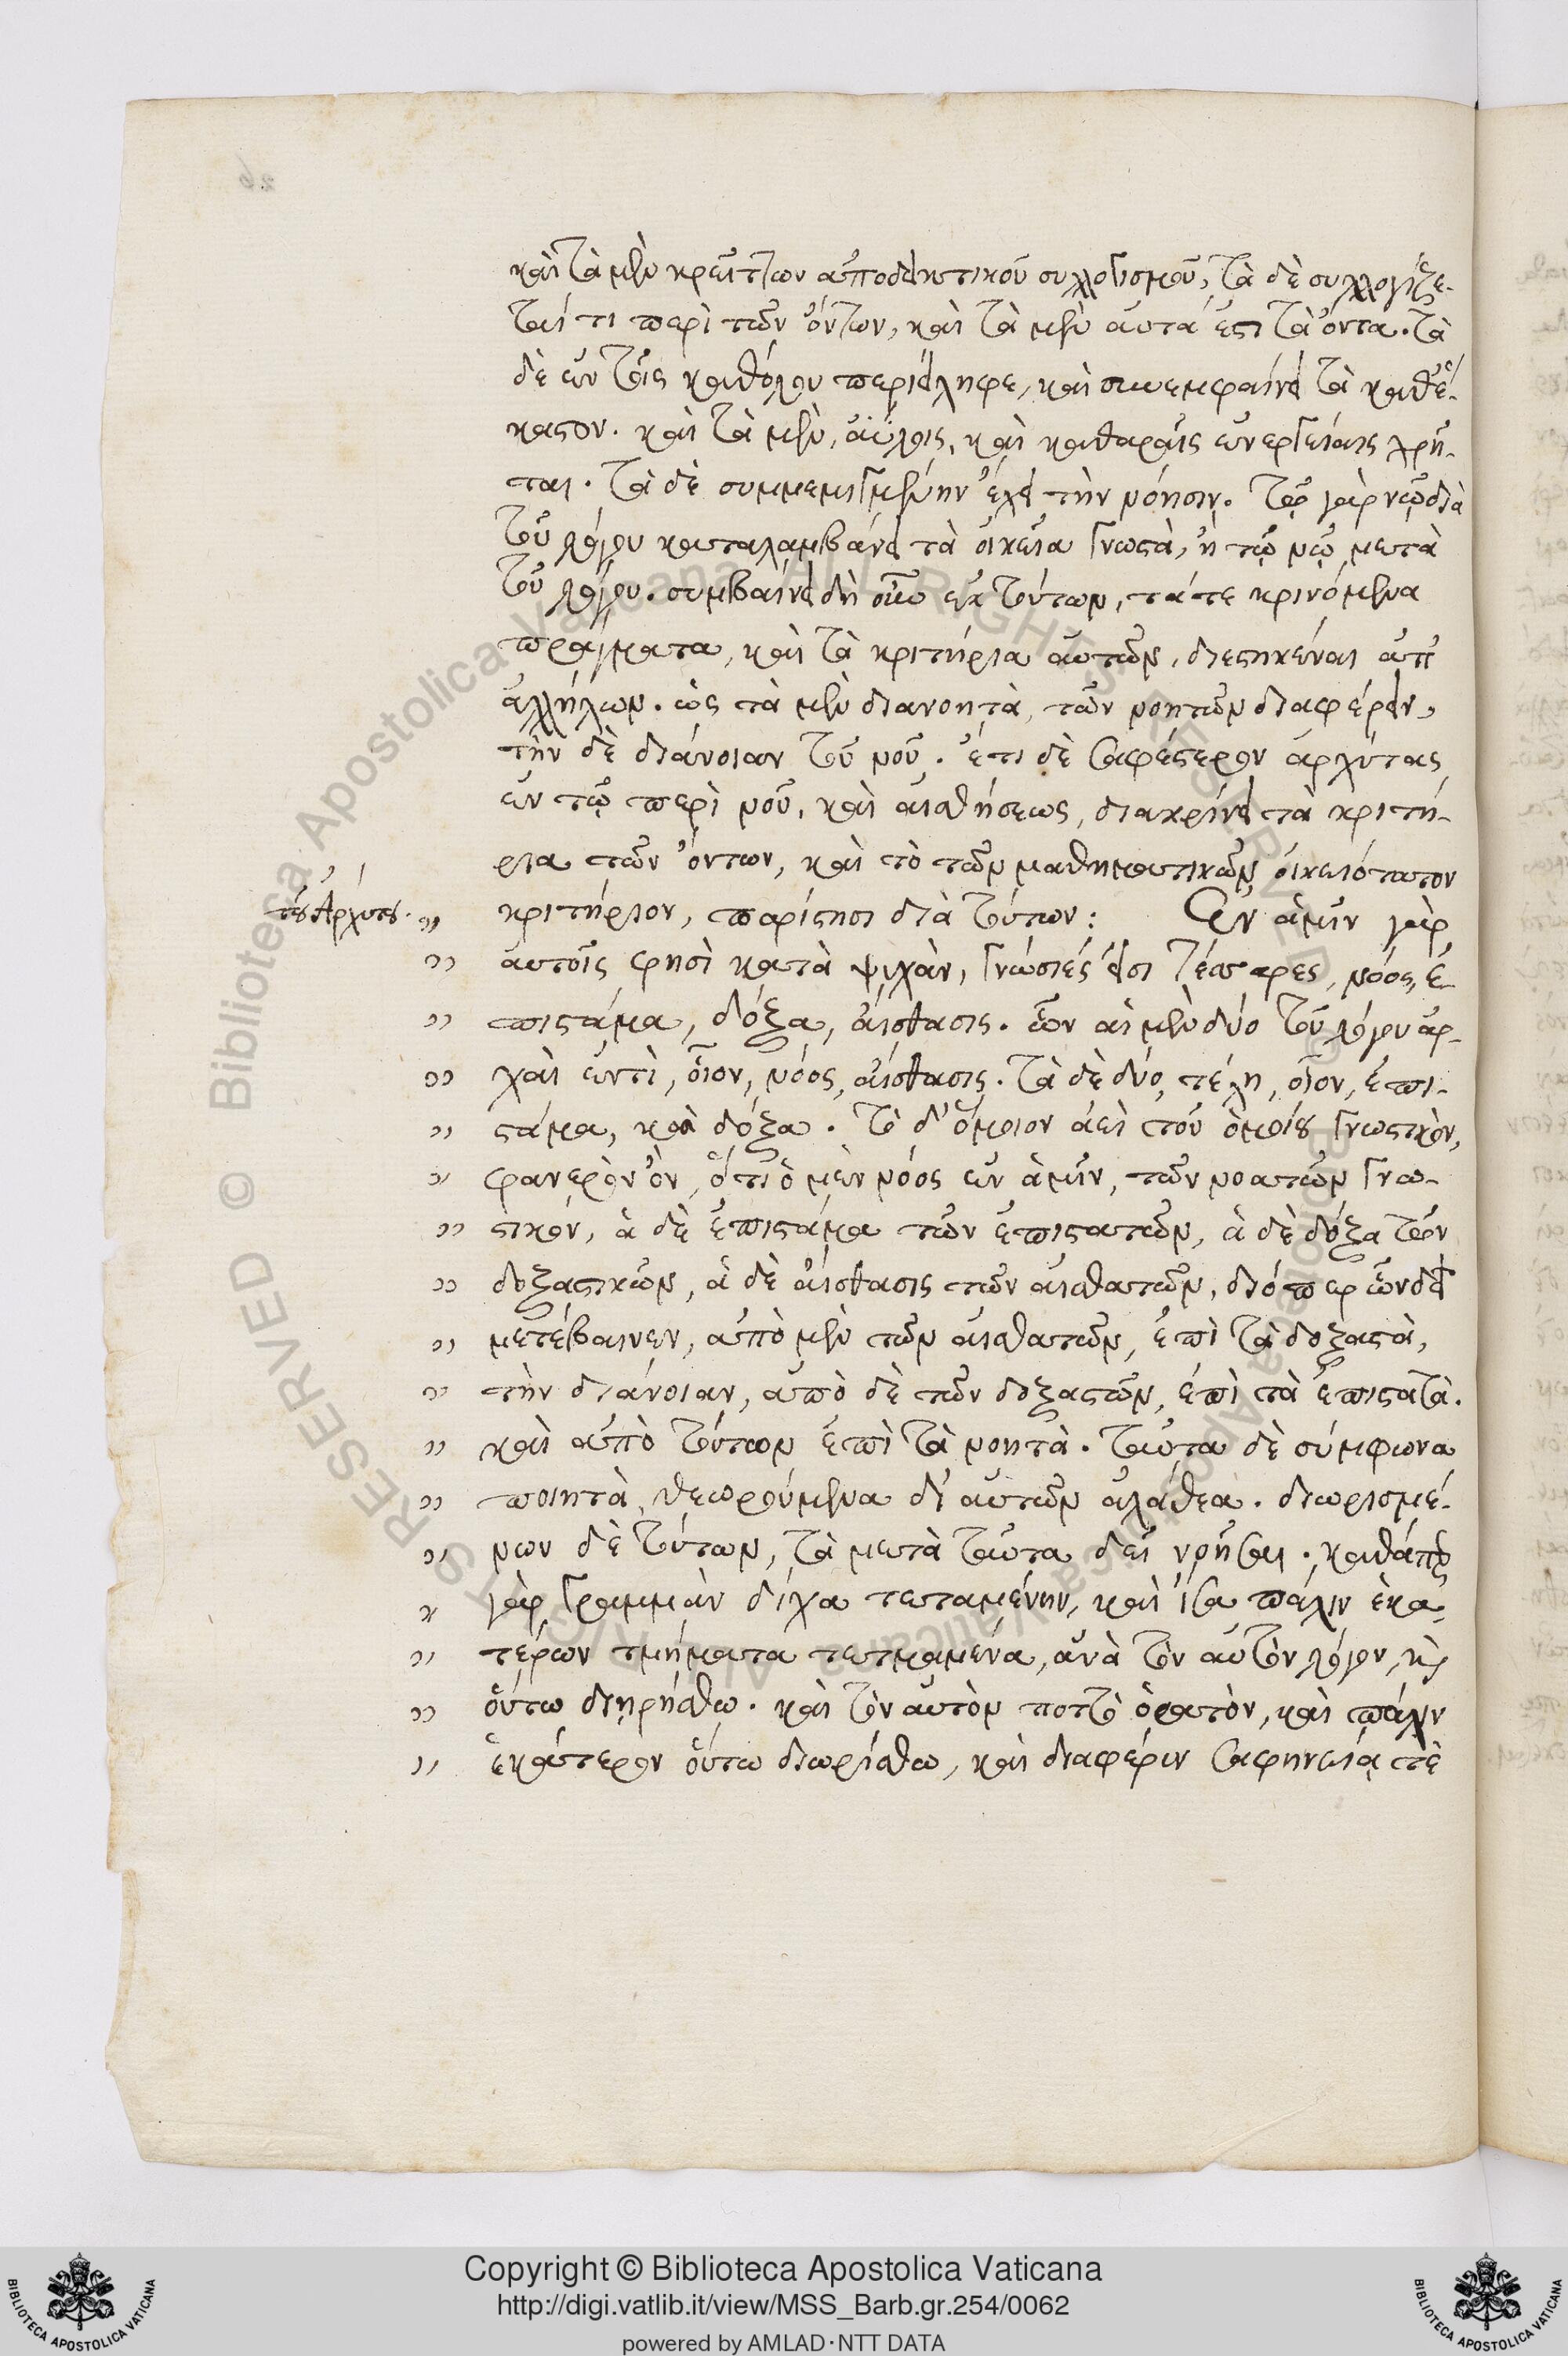 καὶ τὰ μὲν κρείττων ἀποδεικτικοῦ συλλογισμοῦ, τὰ δὲ συλλογίζε-
ταί τι περὶ τῶν ὄντων, καὶ τὰ μὲν αὐτά ἐστι τὰ ὄντα. τὰ
δὲ ἐν τοῖς καθόλου περιείληφε, καὶ συνεμφαίνει τὰ καθέ-
καστον. καὶ τὰ μὲν, ἀΰλοις, καὶ καθαραῖς ἐνεργείαις χρῆ-
ται. τὰ δὲ συμμεμιγμένην ἔχει τὴν νόησιν. τῷ γὰρ νῷ διὰ
τοῦ λόγου καταλαμβάνει τὰ οἰκεῖα γνωστὰ, ἢ τῷ νῷ μετὰ
τοῦ λόγου. συμβαίνει δὴ οὖν ἐκ τούτων, τά τε κρινόμενα
πράγματα, καὶ τὰ κριτήρια αὐτῶν, διεστηκέναι ἀπ'
ἀλλήλων. ὡς τὰ μὲν διανοητὰ, τῶν νοητῶν διαφέρειν,
τὴν δὲ διάνοιαν τοῦ νοῦ. ἔτι δὲ σαφέστερον ἀρχύτας
ἐν τῷ περὶ νοῦ, καὶ αἰσθήσεως, διακρίνει τὰ κριτή-
ρια τῶν ὄντων, καὶ τὸ τῶν μαθηματικῶν οἰκειότατον
τοῦ Ἀρχύτου. " κριτήριον, παρίστησι διὰ τούτων: Ἐν ἁμῖν γὰρ
" αὐτοῖς φησὶ κατὰ ψυχὰν, γνώσιές εἰσι τέσσαρες, νόος, ἐ-
" πιστάμα, δόξα, αἴσθασις. ὧν αἱ μὲν δύο τοῦ λόγου ἀρ-
" χαὶ ἐντὶ, οἷον, νόος, αἴσθασις. τὰ δὲ δύο, τέλη, οἷον, ἐπι-
" στάμα, καὶ δόξα. τὸ δ' ὅμοιον ἀεὶ τοῦ ὁμοίου γνωστικὸν,
" φανερὸν ὂν, ὅτι ὁ μὲν νόος ἐν ἁμῖν, τῶν νοατῶν γνω-
" στικόν, ἁ δὲ ἐπιστάμα τῶν ἐπιστατῶν, ἁ δὲ δόξα τῶν
" δοξαστικῶν, ἁ δὲ αἴσθασις τῶν αἰσθατῶν, διόπερ ὧν δεῖ
" μετέβαινεν, ἀπὸ μὲν τῶν αἰσθατῶν, ἐπὶ τὰ δοξαστὰ,
" τὴν διάνοιαν, ἀπὸ δὲ τῶν δοξαστῶν, ἐπὶ τὰ ἐπιστατὰ.
" καὶ ἀπὸ τούτων ἐπὶ τὰ νοητὰ. ταῦτα δὲ σύμφωνα
" ποιητὰ, θεωρούμενα δι' αὐτῶν ἀλάθεα. διωρισμέ-
" νων δὲ τούτων, τὰ μετὰ ταῦτα δεῖ νοῆσαι. καθάπερ
" γὰρ γραμμὰν δίχα τεταμένην, καὶ ἴσα πάλιν ἑκα-
" τέρων τμήματα τετμαμένα, ἀνὰ τὸν αὐτὸν λόγον, καὶ
" οὕτω διῃρήσθω. καὶ τὸν αὐτὸν ποττὸ ὁρατὸν, καὶ πάλιν
" ἑκάτερον οὕτω διωρίσθω, καὶ διαφέριν σαφηνείᾳ τὲ
Copyright © Biblioteca Apostolica Vaticana
http://digi.vatlib.it/view/MSS_Barb.gr.254/0062
powered by AMLAD·NTT DATA